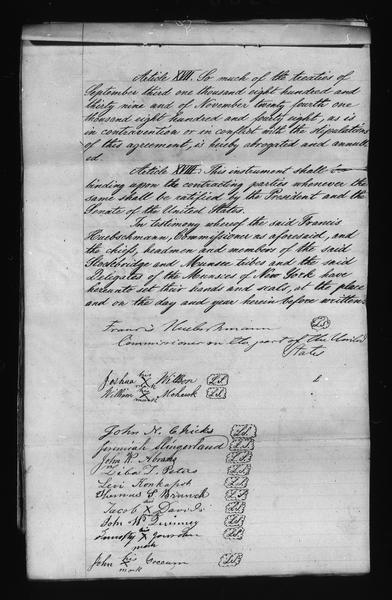 Article XVII. So much of the treaties of
September third one thousand eight hundred and
thirty nine and of November twenty fourth one
thousand eight hundred and fourty eight, as is
in contravention or in conflict with the stipulations
of this agreement, is hereby abrogated and annull
ed.
Article XVIII. This instrument shall be
binding upon the contracting parties whenever the
same shall be ratified by the President and the
Senate of the United States.
In testimony whereof the said Francis
Huebschmann, Commissioner as aforesaid, and
the chiefs, headmen and members of the said
Stockbridge and Munsee tribes and the said
Delegates of the Munsees of New York have
hereunto set their hands and seals, at the place
and on the day and year herein before written.
Francis Huebschmann L.S.
Commissioner on the part of the United
States
Joshua his X mark Willson L.S.
William his X mark Mohawk L.S.
John N. Chicks L.S.
Jeremiah Slingerland L.S.
John W. Abrams L.S.
Ziba T. Peters L.S.
Levi Konkapot L.S.
Thomas S. Branch L.S.
Jacob his X Davids L.S.
John W. Quinney L.S.
Timothy his X mark Jourdan L.S.
John his X mark L.S.